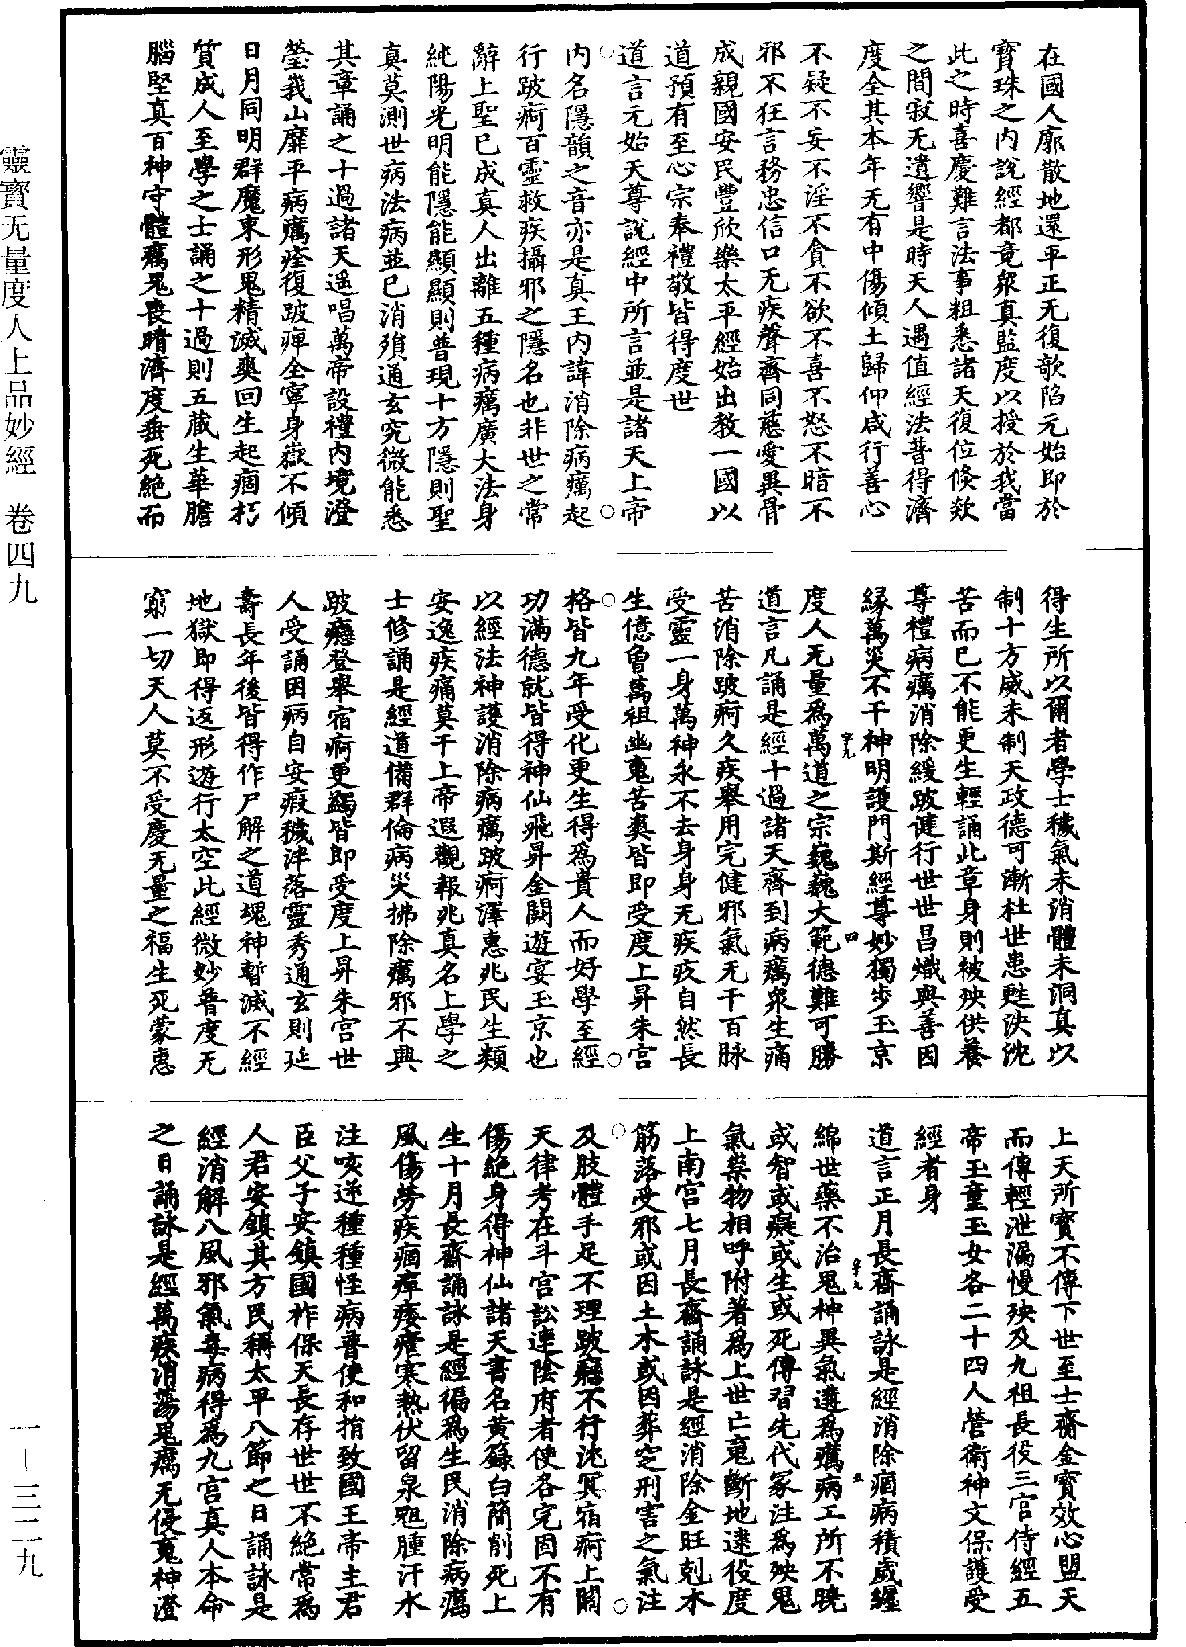 在國人廓散地還平正无復欹陷元始即於
寶珠之內說經都竟衆真監度以授於我當
此之時喜慶難言法事粗悉諸天復位倏欻
之間寂无遺響是時天人遇值經法普得濟
度全其本年无有中傷傾土歸仰咸行善心
不疑不妄不淫不貪不欲不喜不怒不暗不
邪不狂言務忠信口无疾聲齊同慈愛異骨
成親國安民豐欣樂太平經始出教一國以
道預有至心宗奉禮敬皆得度世
道言元始天尊說經中所言並是諸天上帝
內名隱韻之音亦是真王內諱消除病癘起
行跛痾百靈救疾攝邪之隱名也非世之常
辭上聖已成真人出離五種病癘廣大法身
純陽光明能隱能顯顯則普現十方隱則聖
真莫測世病法病並已消殞通玄究微能悉
其章誦之十過諸天遥唱萬帝設禮內境澄
瑩我山靡平病癘痊復跛痺全寧身嶽不傾
日月同明群魔束形鬼精滅爽回生起痼朽
質成人至學之士誦之十過則五藏生華膽
腦堅真百神守體癘鬼喪睛濟度垂死絕而
得生所以爾者學士穢氣未消體未洞真以
制十方威未制天政德可漸杜世患甦泱沈
苦而已不能更生輕誦此章身則被殃供養
尊禮病癘消除緩跛健行世世昌熾與善因
緣萬災不干神明護門斯經尊妙獨步玉京
度人无量爲萬道之宗巍巍大範德難可勝
道言凡誦是經十過諸天齊到病癘衆生痛
苦消除跛痾久疾舉用完健邪氣无干百脉
受靈一身萬神永不去身身无疾疚自然長
生億曾萬祖幽䰟苦爽皆即受度上昇朱宮
格皆九年受化更生得爲貴人而好學至經
功滿德就皆得神仙飛昇金闕遊宴玉京也
以經法神護消除病癘跛痾澤惠兆民生類
安逸疾痛莫干上帝遐觀報兆真名上學之
士修誦是經道備群倫病災拂除癘邪不興
跛癮登舉宿痾更蠲皆即受度上昇朱宮世
人受誦因病自安瘕穢泮落靈秀通玄則延
壽長年後皆得作尸解之道魂神暫滅不經
地獄即得返形遊行太空此經微妙普度无
窮一切天人莫不受慶无量之福生死蒙惠
上天所寶不傳下世至士齎金寶效心盟天
而傳輕泄漏慢殃及九祖長役三官侍經五
帝玉童玉女各二十四人營衛神文保護受
經者身
道言正月長齋誦詠是經消除痼病積歲纏
綿世藥不治鬼神異氣遘爲癘病工所不曉
或智或癡或生或死傳習先代冢注爲殃鬼
氣祟物相呼附著爲上世亡䰟斷地逮役度
上南宮七月長齋誦詠是經消除金旺剋木
筋落受邪或因土木或因葬空刑害之氣注
及肢體手足不理跛癮不行沈冥宿痾上關
天律考在斗宮訟連陰府者使各完固不有
傷絕身得神仙諸天書名黄籙白簡削死上
生十月長齋誦詠是經徧爲生民消除病癘
風傷勞疾痼痺痿瘧寒熱伏留泉疽腫汗水
注咳逆種種怪病普使和指致國王帝主君
臣父子安鎮國祚保天長存世世不絕常爲
人君安鎮其方民稱太平八節之日誦詠是
經消解八風邪氣毒病得爲九宮真人本命
之日誦詠是經萬疾消蕩鬼癘无侵䰟神澄
靈寶无量度人上品妙經 卷四九
一—三二九